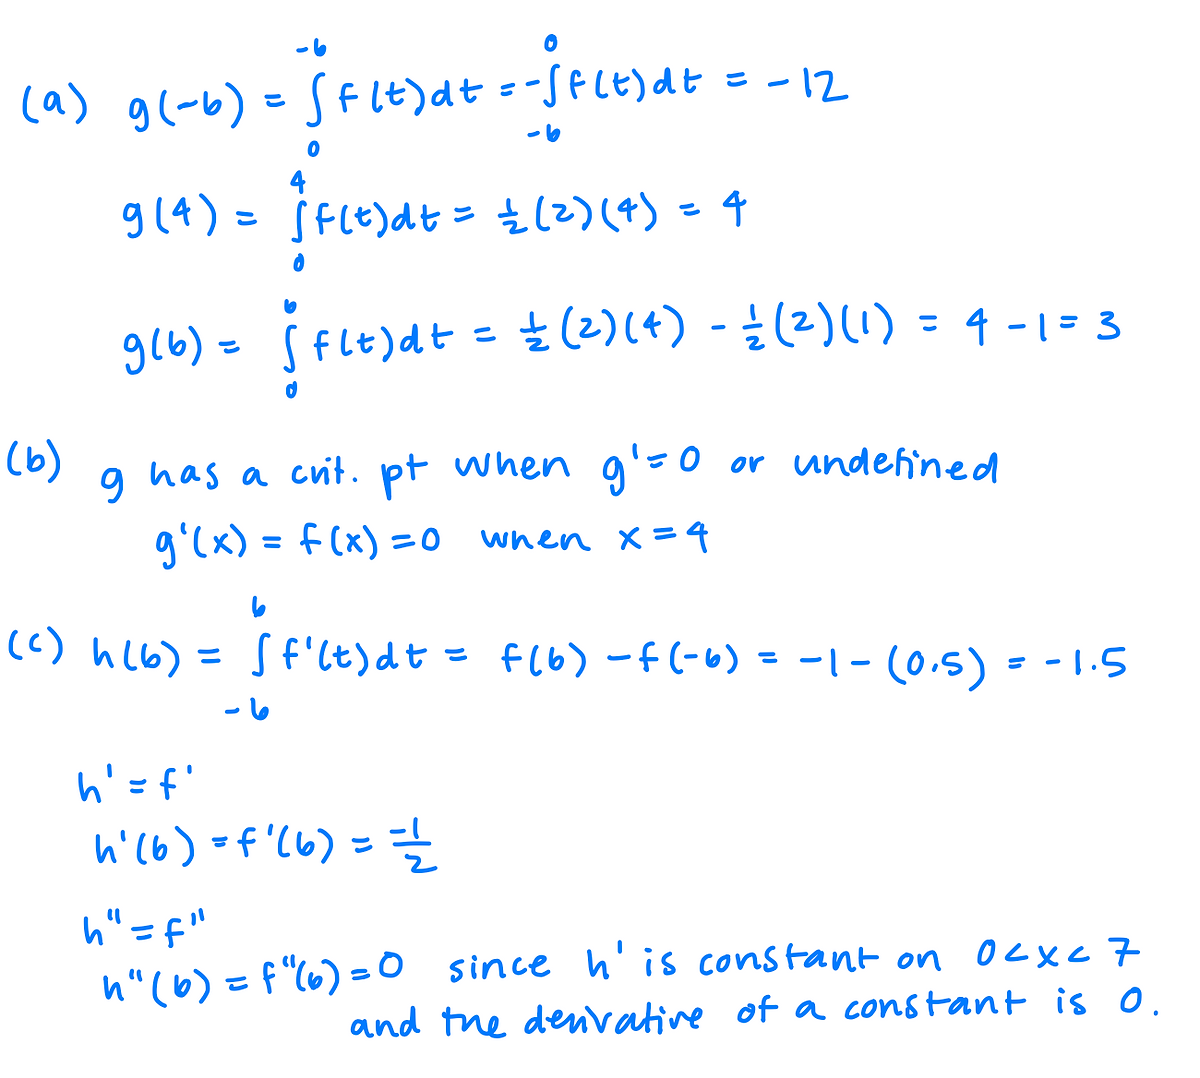 (a) g(-6) = ∫₀⁻⁶ f(t)dt = -∫₋₆⁰ f(t)dt = -12
g(4) = ∫₀⁴ f(t)dt = ½(2)(4) = 4
g(6) = ∫₀⁶ f(t)dt = ½(2)(4) - ½(2)(1) = 4 - 1 = 3
(b) g has a crit. pt when g' = 0 or undefined
g'(x) = f(x) = 0 when x = 4
(c) h(6) = ∫₋₆⁶ f'(t)dt = f(6) - f(-6) = -1 - (0.5) = -1.5
h' = f'
h'(6) = f'(6) = -1/2
h" = f"
h"(6) = f"(6) = 0 since h' is constant on 0 < x < 7
and the derivative of a constant is 0.